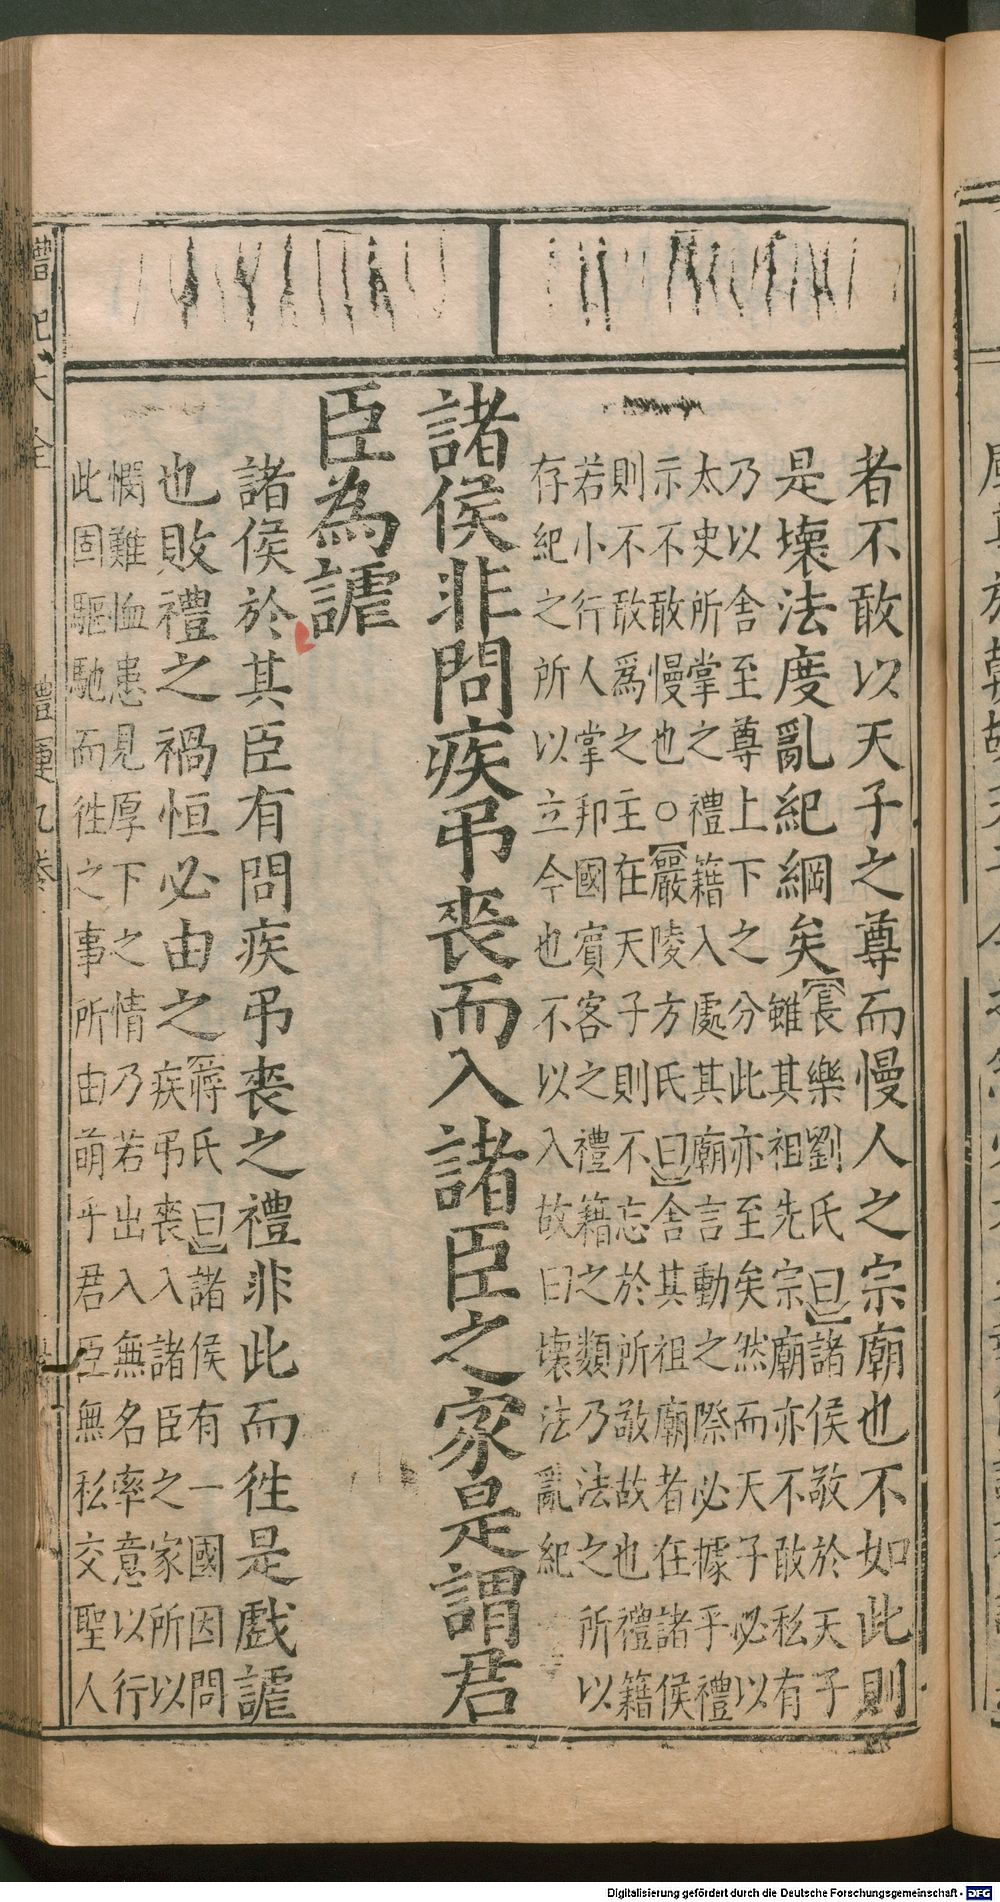 者不敢以天子之尊而慢人之宗廟也不如此則
是壞法度亂紀綱矣【長樂劉氏曰】諸侯敬於天子
雖其祖先宗廟亦不敢私有
乃以舍至尊上下之分此亦至矣然而天子必以
太史所掌之禮籍入處其廟言動之際必據乎禮
示不敢慢也○【嚴陵方氏曰】舍其祖廟者在諸侯
則不敢爲之主在天子則不忘於所敬故也禮籍
若小行人掌邦國賓客之禮籍之類乃法之所以
存紀之所以立今也不以入故曰壞法亂紀
諸侯非問疾弔喪而入諸臣之家是謂君
臣為謔
諸侯於其臣有問疾弔喪之禮非此而徃是戲謔
也敗禮之禍恒必由之【蔣氏曰】諸侯有一國因問
疾弔喪入諸臣之家所以
憫難恤患見厚下之情乃若出入無名率意以行
此固驅馳而徃之事所由萌乎君臣無私交聖人
禮記大全 禮運九卷